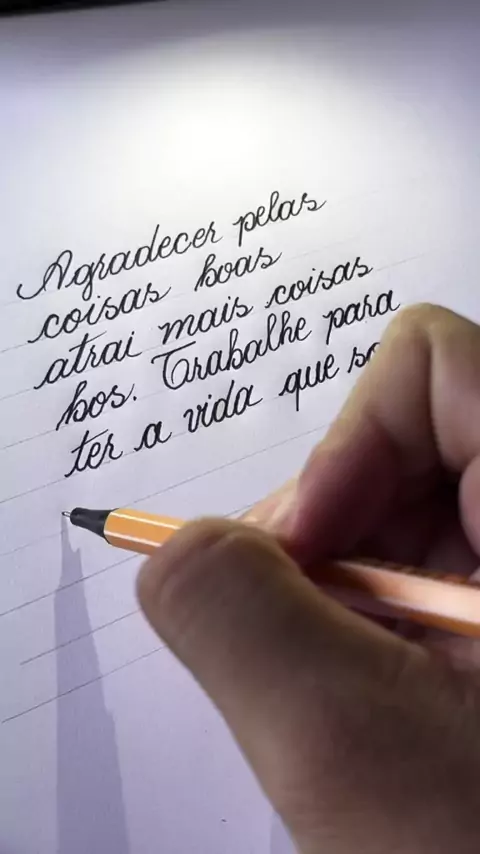 Agradecer pelas
coisas boas
atrai mais coisas
bos. Trabalhe para
ter a vida que so